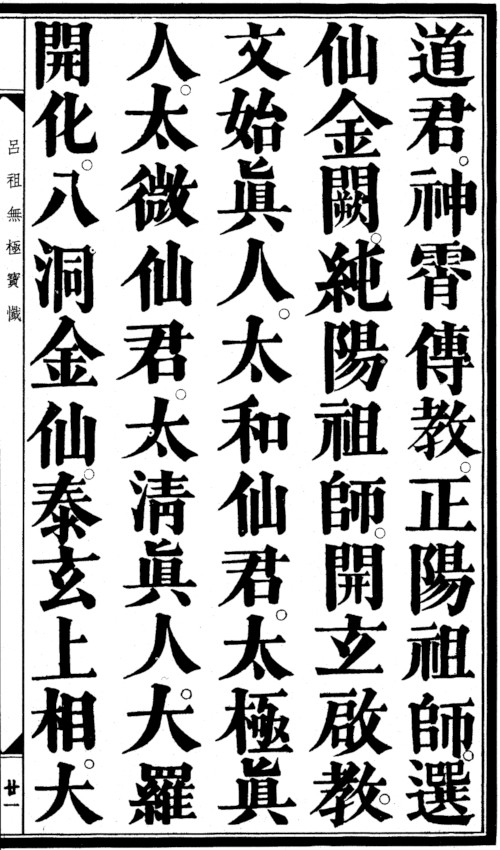 道君。神霄傳教。正陽祖師。選
仙金闕。純陽祖師。開玄啟教。
文始眞人。太和仙君。太極眞
人。太微仙君。太清眞人。大羅
開化。八洞金仙。泰玄上相。大
呂祖無極寶懺
廿一